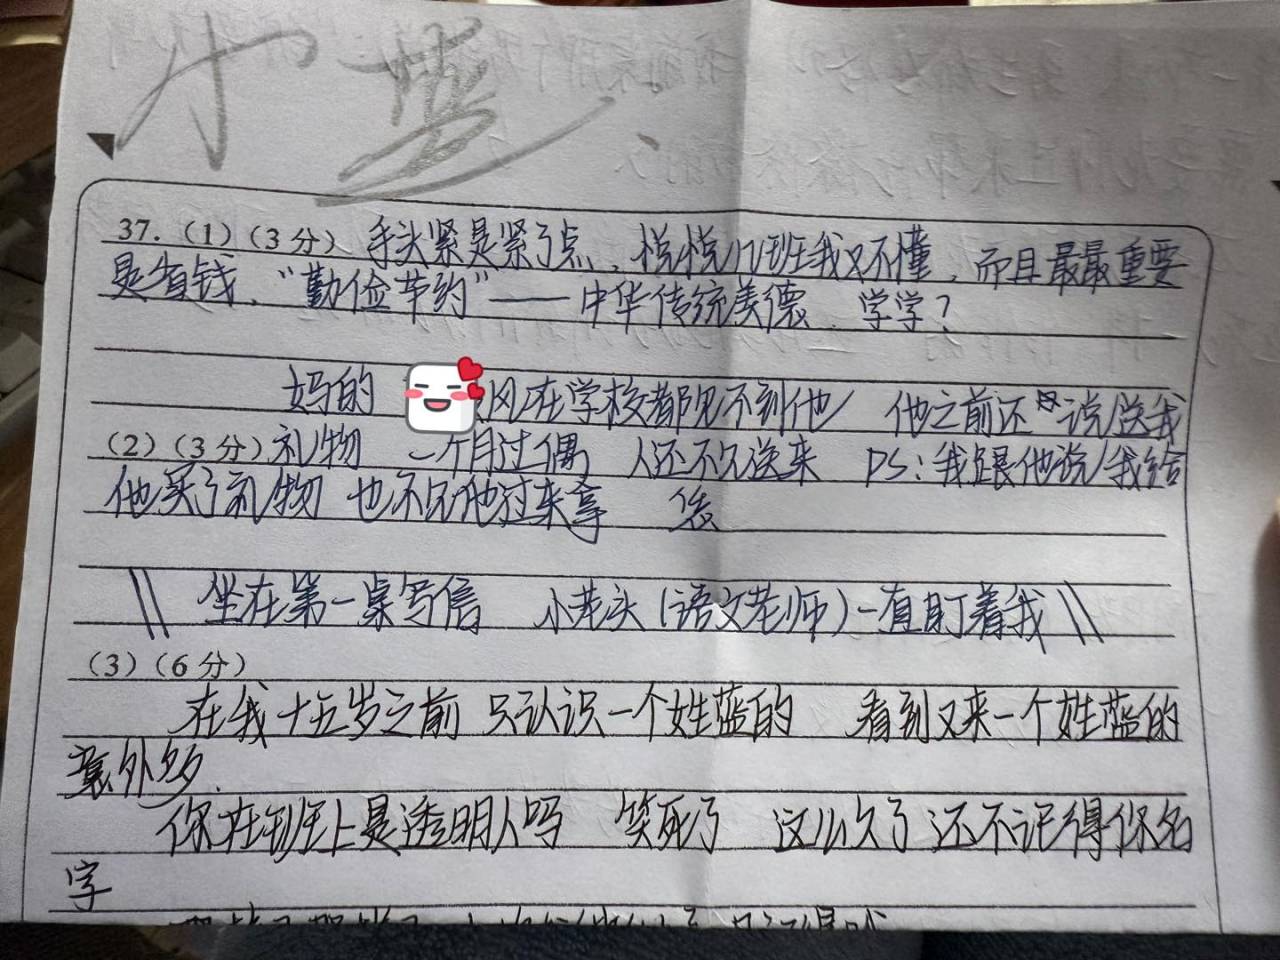 37.(1)(3分)手头紧是紧了点，悦悦几班我又不懂，而且最最重要
是省钱、“勤俭节约”——中华传统美德、学学？
妈的 风在学校都见不到他 他之前还说送我
(2)(3分)礼物 一个月过偶 人还不欠送来 PS：我跟他说我给
他买了礼物 也不见他过来拿
\\ 坐在第一桌写信 小老头(语文老师)一直盯着我 \\
(3)(6分)
在我十五岁之前 只认识一个姓蓝的 看到又来一个姓蓝的
意外多.
你在班上是透明人吗 笑死了 这么久了还不记得你名
字